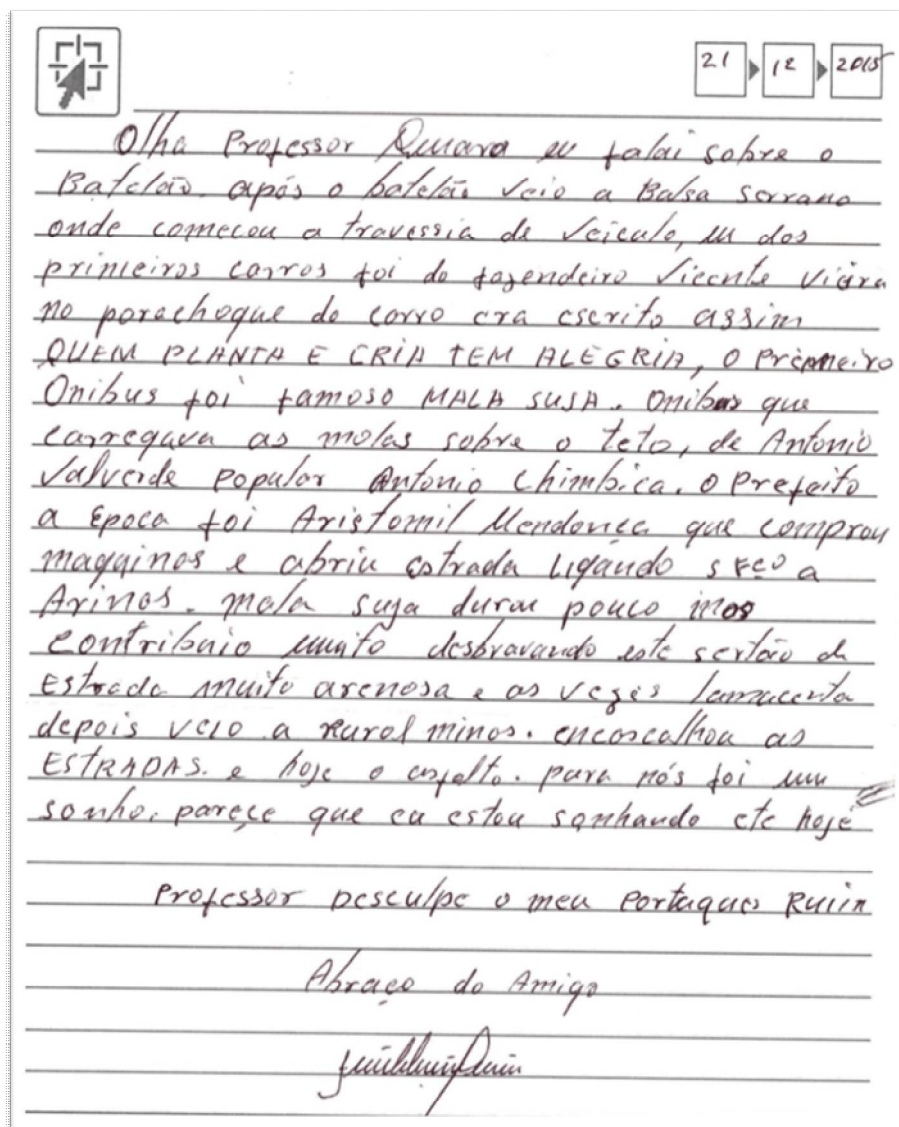 21 12 2015
Olha Professor eu falai sobre o
Batelão. após o batelão veio a Balsa serrana
onde comecou a travessia de Veiculo, um dos
primeiros carros foi do fazendeiro Vicente Vieira
no parachoque do carro era escrito assim
QUEM PLANTA E CRIA TEM ALEGRIA, O Primeiro
Onibus foi famoso MALA SUJA. Onibus que
carregava as malas sobre o teto, de Antonio
Valverde Popular Antonio Chimbica. O Prefeito
a Epoca foi Aristomil Mendonça que comprou
maquinas e abriu estrada Ligando SFCO a
Arinos. mala suja durou pouco mas
contribuio muito desbravando este sertão de
Estrada muito arenosa e as vezes lamacenta
depois veio a Rural minas. encascalhou as
ESTRADAS. e hoje o asfalto. para nós foi um
sonho. pareçe que eu estou sonhando ete hoje
Professor Desculpe o meu Portugues Ruim
Abraço do Amigo